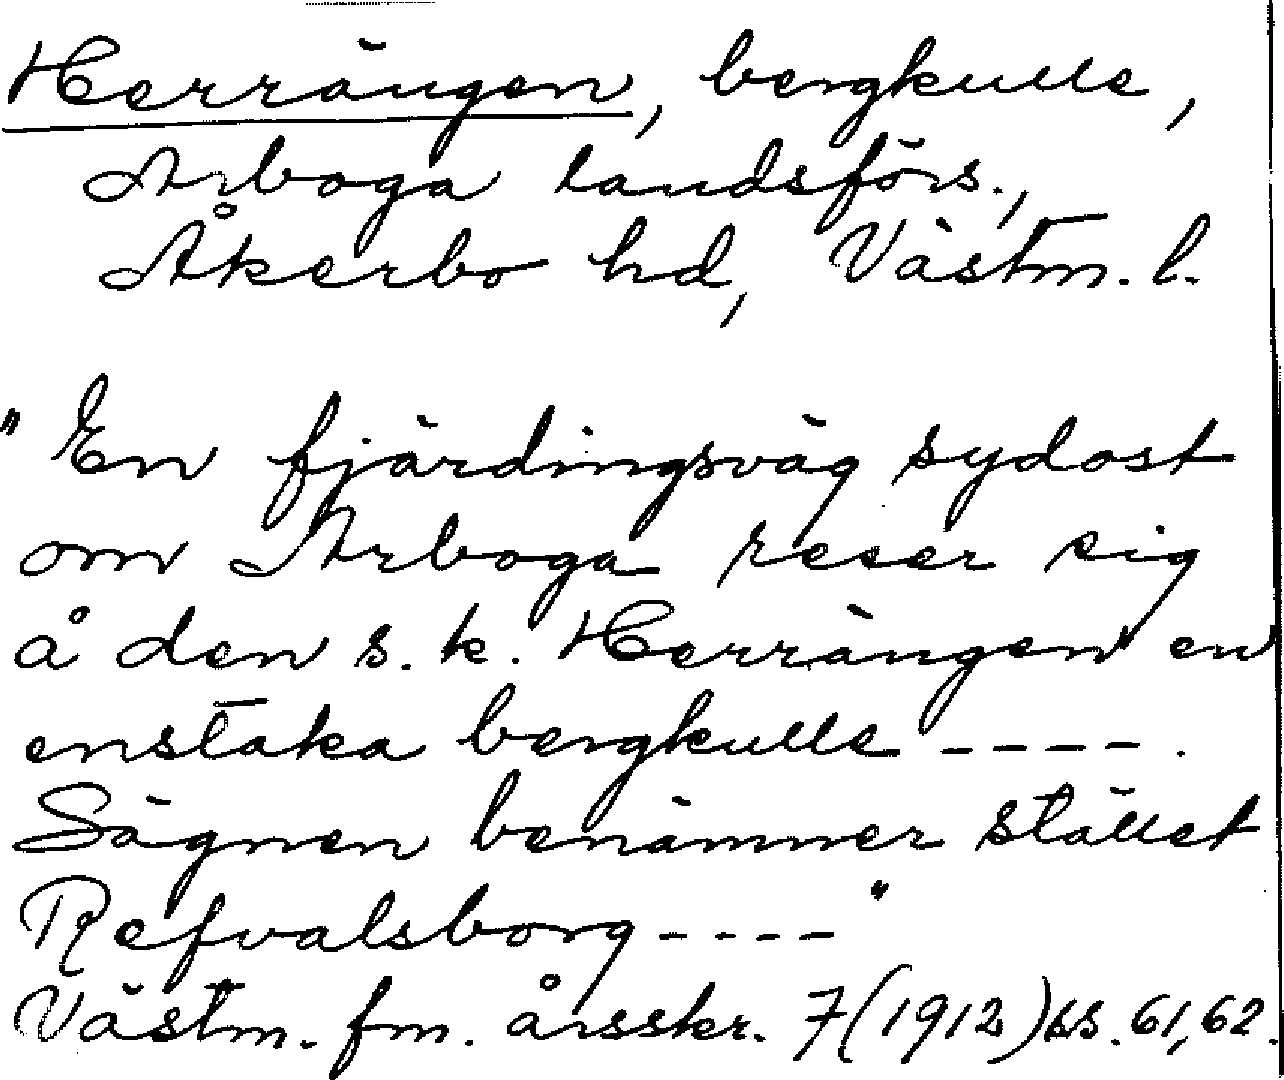 Herrängen, bergkulle,
Arboga landsförs.,
Åkerbo hd, Västm. l.
"En fjärdingsväg sydost
om Arboga reser sig
å den s.k. Herrängen en
enstaka bergkulle ----.
Sägnen benämner stället
Refvalsborg ----"
Västm. fm. årsskr. 7(1912)ss. 61,62.